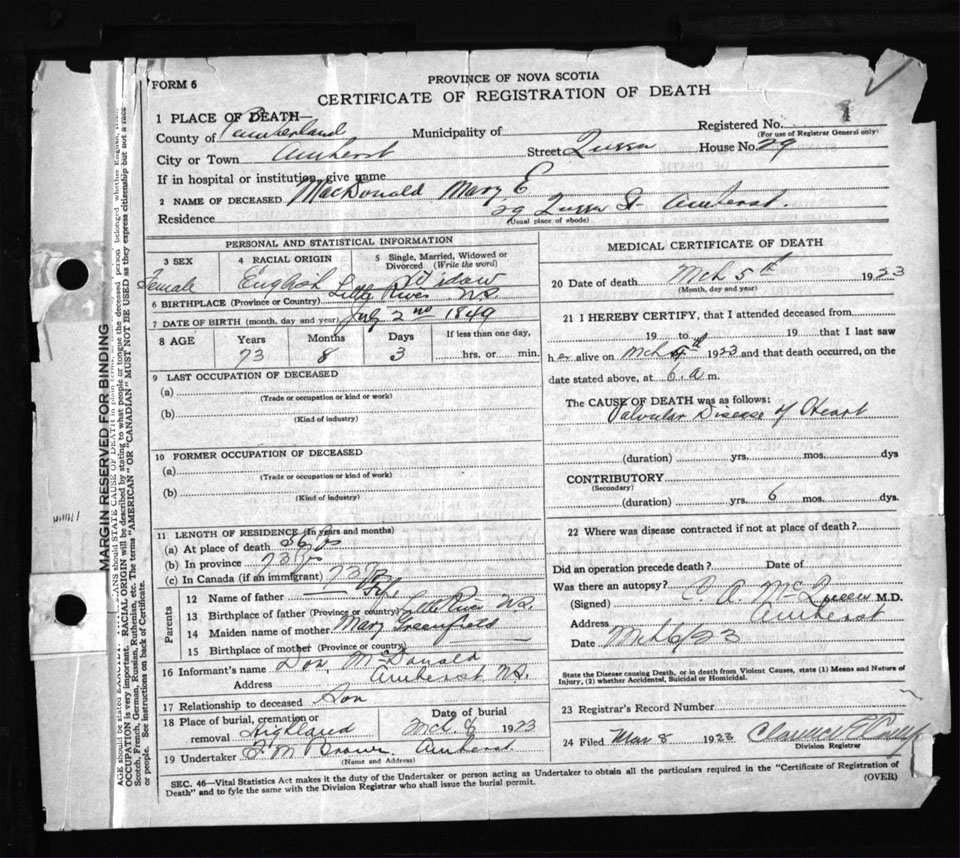 FORM 6
PROVINCE OF NOVA SCOTIA
CERTIFICATE OF REGISTRATION OF DEATH
1 PLACE OF DEATH—
County of Cumberland Municipality of Registered No. 1
(For use of Registrar General only)
City or Town Amherst Street House No. 29
If in hospital or institution, give name
2 NAME OF DECEASED MacDonald Mary E
Residence 29 St- Amherst.
(Usual place of abode)
PERSONAL AND STATISTICAL INFORMATION
3 SEX 4 RACIAL ORIGIN 5 Single, Married, Widowed or Divorced (Write the word)
Female English Widow
6 BIRTHPLACE (Province or Country) Little River NS
7 DATE OF BIRTH (month, day and year) July 2nd 1849
8 AGE Years Months Days If less than one day,
73 8 3 hrs. or min.
9 LAST OCCUPATION OF DECEASED
(a)
(Trade or occupation or kind or work)
(b)
(Kind of industry)
10 FORMER OCCUPATION OF DECEASED
(a)
(Trade or occupation or kind of work)
(b)
(Kind of industry)
11 LENGTH OF RESIDENCE (In years and months)
(a) At place of death
(b) In province 73 yrs
(c) In Canada (if an immigrant) 73 yrs
Parents
12 Name of father
13 Birthplace of father (Province or country) Little River NS.
14 Maiden name of mother Mary
15 Birthplace of mother (Province or country)
16 Informant's name Don McDonald
Address Amherst NS.
17 Relationship to deceased Son
18 Place of burial, cremation or removal Highland Date of burial Mch. 1923
19 Undertaker F M Brown Amherst
(Name and Address)
MEDICAL CERTIFICATE OF DEATH
20 Date of death Mch 5th 1923
(Month, day and year)
21 I HEREBY CERTIFY, that I attended deceased from
19 to 19 that I last saw
h er alive on Mch 4th 1923 and that death occurred, on the
date stated above, at 6. a m.
The CAUSE OF DEATH was as follows:
Valvular Disease of Heart
(duration) yrs. mos. dys
CONTRIBUTORY
(Secondary)
(duration) yrs. 6 mos. dys.
22 Where was disease contracted if not at place of death?
Did an operation precede death? Date of
Was there an autopsy?
(Signed) C A McQueen M.D.
Address Amherst
Date Mch 6/23
State the Disease causing Death, or in death from Violent Causes, state (1) Means and Nature of
Injury, (2) whether Accidental, Suicidal or Homicidal.
23 Registrar's Record Number
24 Filed Mar 8 1923 Clarence
Division Registrar
SEC. 46—Vital Statistics Act makes it the duty of the Undertaker or person acting as Undertaker to obtain all the particulars required in the "Certificate of Registration of
Death" and to fyle the same with the Division Registrar who shall issue the burial permit. (OVER)
MARGIN RESERVED FOR BINDING
AGE should be stated should STATE CAUSE OF DEATH in plain
OCCUPATION is very important. RACIAL ORIGIN will be described by stating to what people or tongue the deceased person belonged whether English,
Scotch, French, German, Russian, Ruthenian, etc. The terms "AMERICAN" or "CANADIAN" MUST NOT BE USED as they express citizenship but not a race
or people. See instructions on back of Certificate.